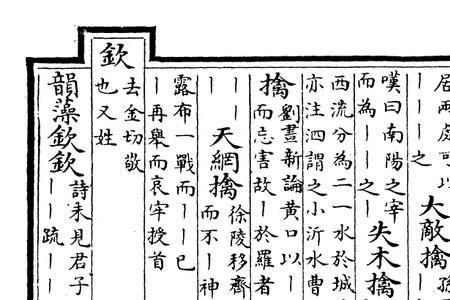 居兩處可以
丨丨之
大敵擒
孫
嘆曰南陽之宰
而為丨丨之丨
失木擒
西流分為二一水於城
亦注泗謂之小沂水曹
擒
劉晝新論黃口以丨
而忘害故丨於羅者
丨丨
丨丨
天網擒
徐陵移齊
而不丨神
露布一戰而丨丨已
丨再舉而哀牢授首
欽
去金切敬
也又姓
韻藻欽欽
詩未見君子
丨丨疏丨丨